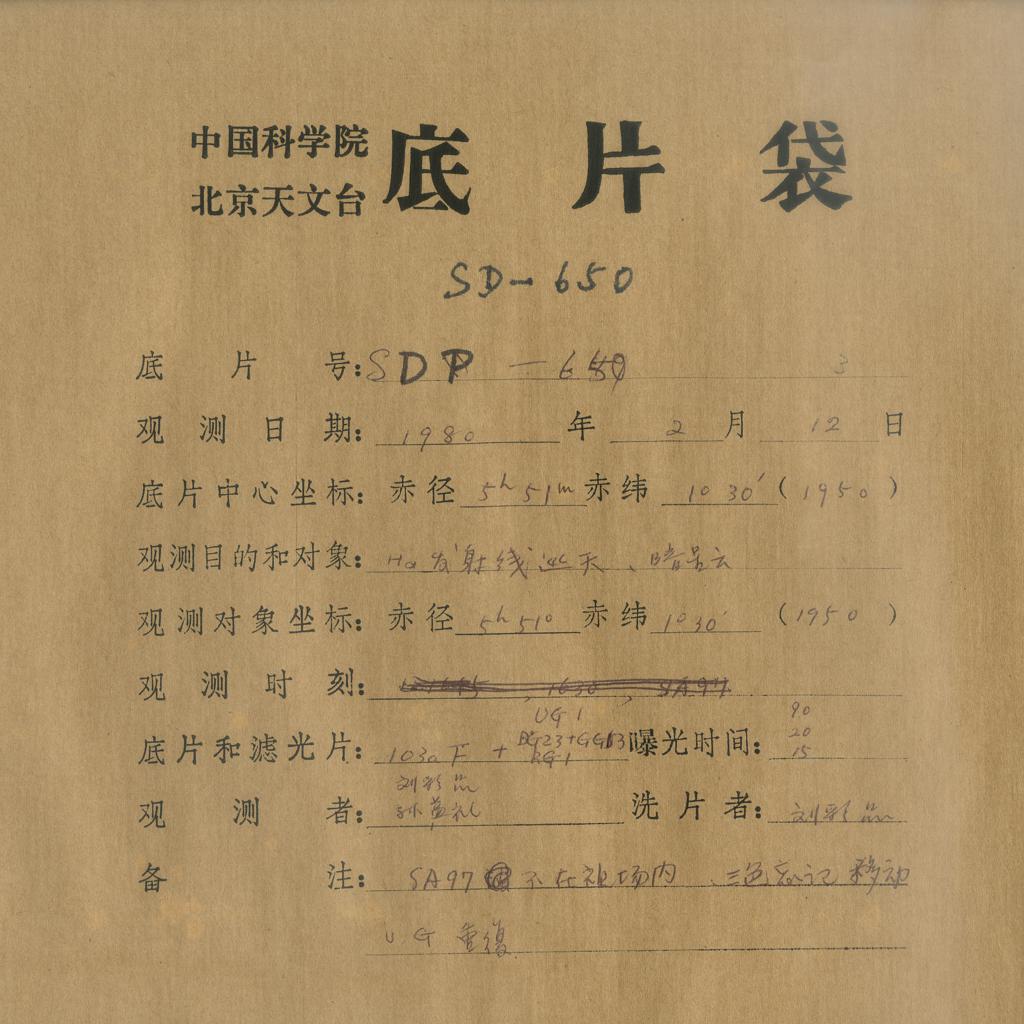 中国科学院
北京天文台
底片袋
SD-650
底片号: SDP - 650 3
观测日期: 1980 年 2 月 12 日
底片中心坐标: 赤径 5h 51m 赤纬 1° 30′ (1950)
观测目的和对象: Hα 发射线巡天、暗星云
观测对象坐标: 赤径 5h 51° 赤纬 1° 30′ (1950)
观测时刻: 1630, SA97
UG1 90
底片和滤光片: 103a F + BG23+GG13 曝光时间: 20
RG1 15
刘彩品
观测者: 洗片者: 刘彩品
备注: SA97 不在视场内、三色忘记移动
U G 重復